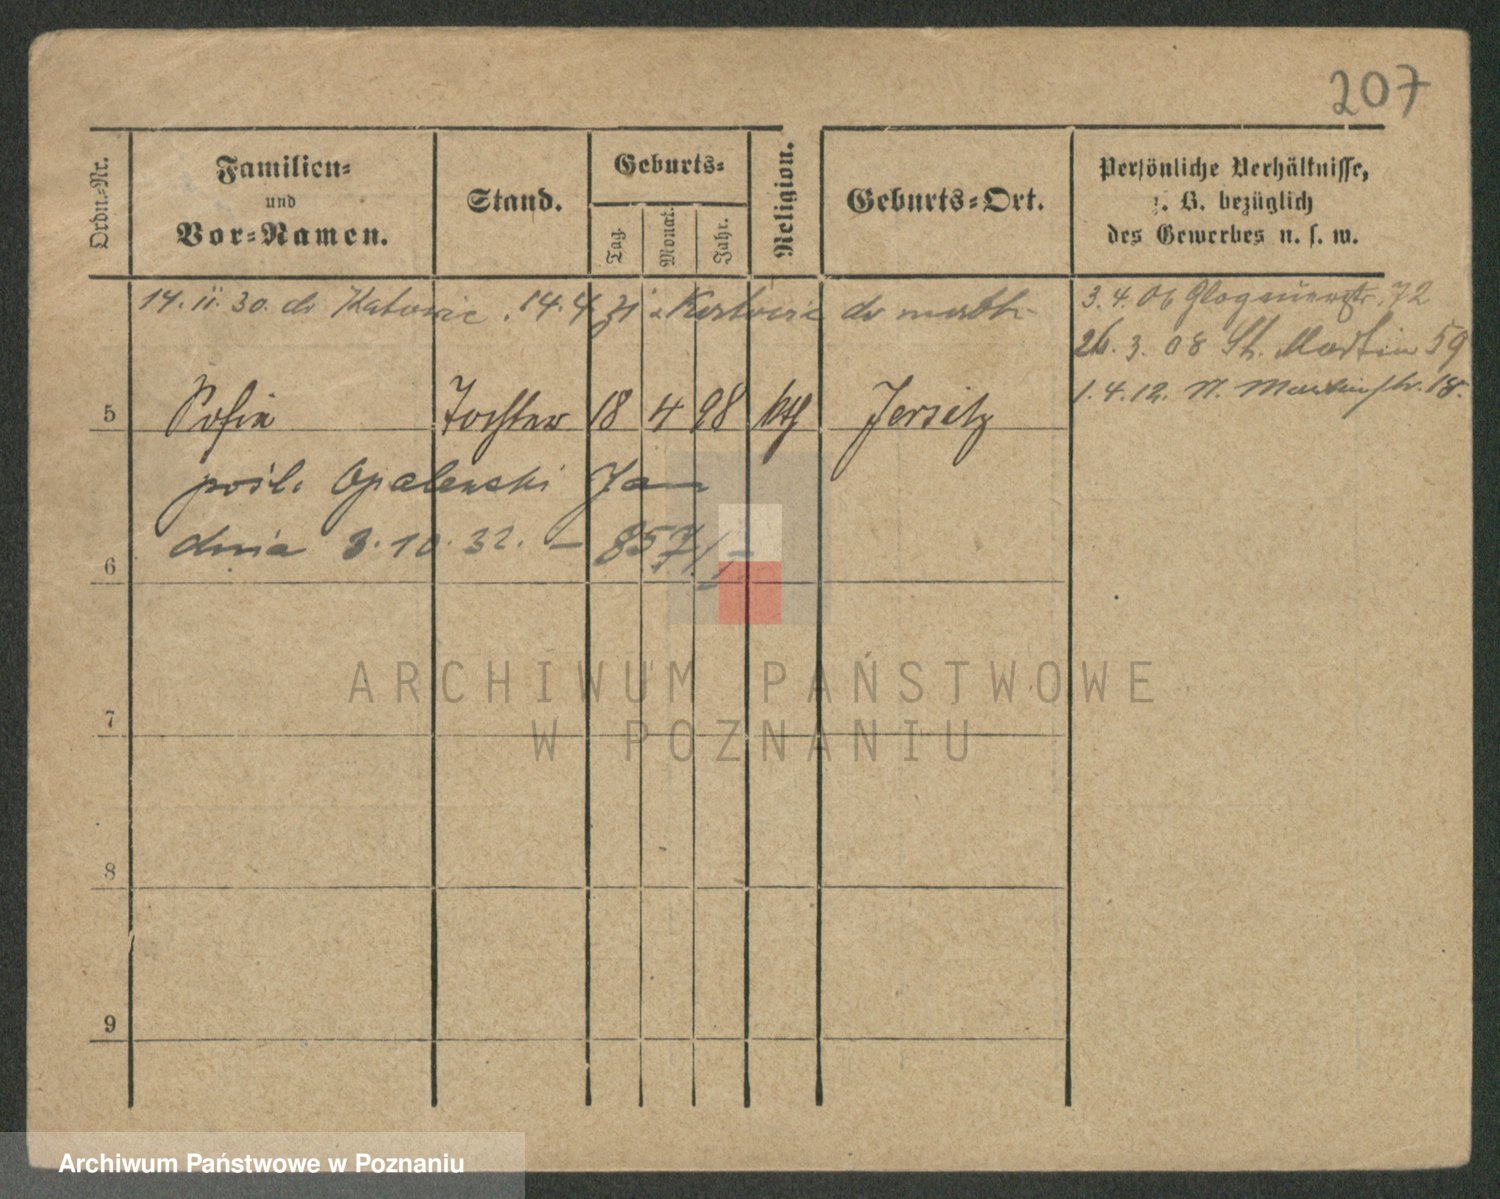 207
Ordn.-Nr.
Familien-
und
Vor-Namen.
Stand.
Geburts-
Tag.
Monat.
Jahr.
Religion.
Geburts-Ort.
Persönliche Verhältnisse,
z. B. bezüglich
des Gewerbes u. s. w.
14. II. 30. do Katowic. 14.4. z Katowic do
3. 4. 06 Glogauerstr. 72
26. 3. 08 St. Martin 59
1. 4. 12. N. Martinstr. 18.
5 Sofia Tochter 18 4 98 kth Jersitz
pośl. Opalenski Jan
dnia 3.10.32. – 857/
6
7
8
9
ARCHIWUM PAŃSTWOWE
W POZNANIU
Archiwum Państwowe w Poznaniu